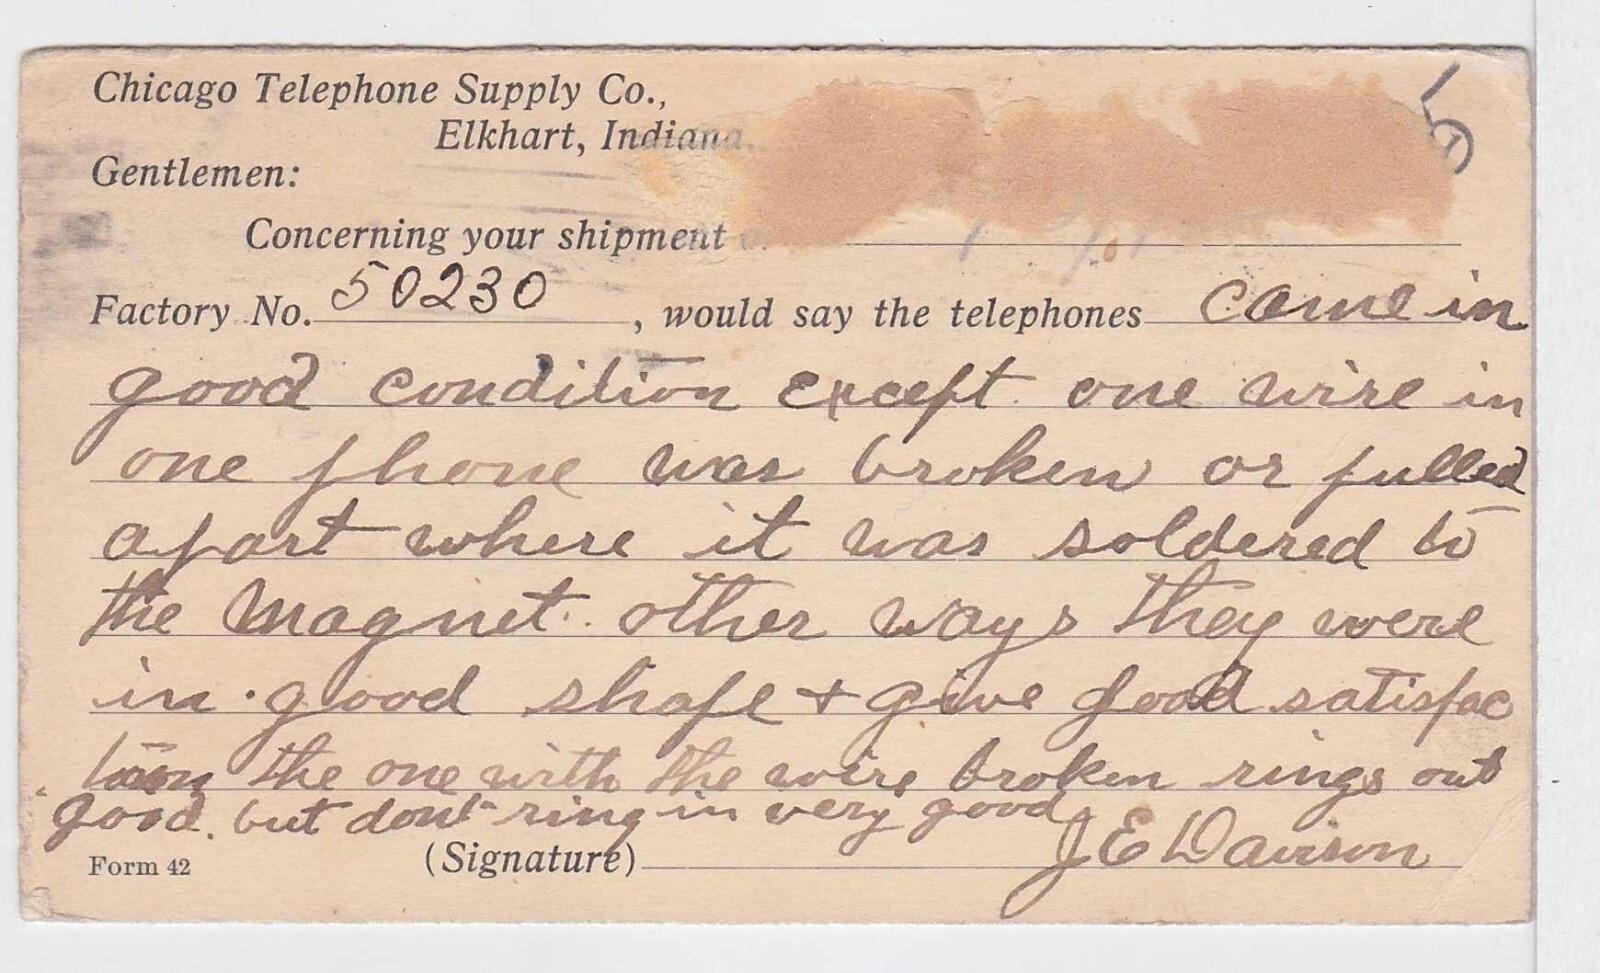 Chicago Telephone Supply Co.,
Elkhart, Indiana.
Gentlemen:
Concerning your shipment
Factory No. 50230, would say the telephones came in
good condition except one wire in
one phone was broken or pulled
apart where it was soldered to
the magnet. other ways they were
in good shape + give good satisfac
tion the one with the wire broken rings out
good. but dont ring in very good
Form 42 (Signature) J E Davison